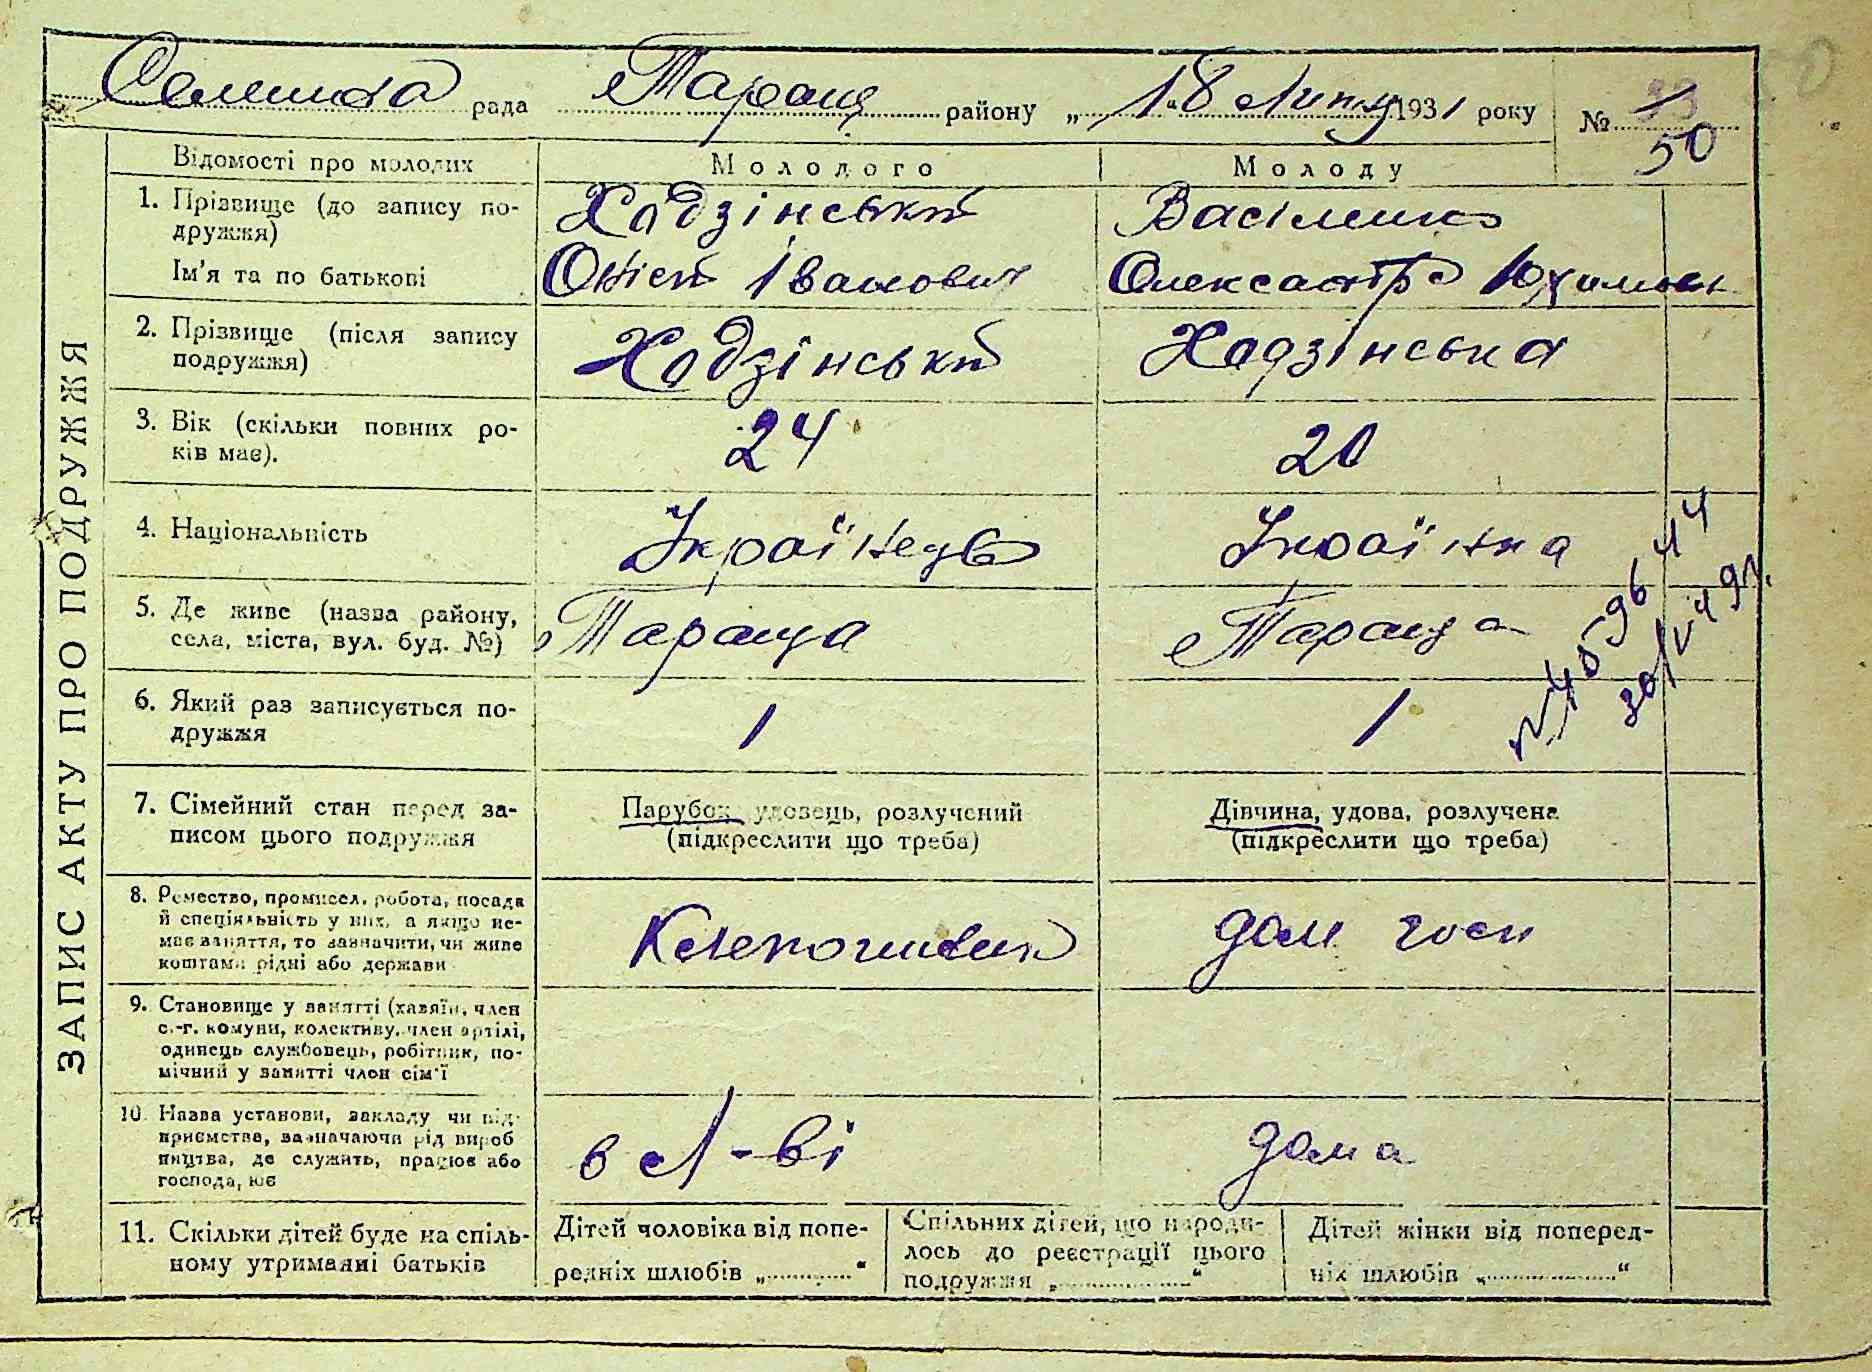 Селищна рада Тараща району „18" Липня 1931 року № 33
50
ЗАПИС АКТУ ПРО ПОДРУЖЖЯ
Відомості про молодих
Молодого
Молоду
1. Прізвище (до запису по-
дружжя)
Ім'я та по батькові
Хадзінський
Іванович
Василенко
Олександра Юхимівн
2. Прізвище (після запису
подружжя)
Хадзінський
Хадзінська
3. Вік (скільки повних ро-
ків має).
24
20
4. Національність
Українець
Українка
5. Де живе (назва району,
села, міста, вул. буд. №)
Тараща
Тараща
6. Який раз записується по-
дружжя
1
1
7. Сімейний стан перед за-
писом цього подружжя
Парубок, удовець, розлучений
(підкреслити що треба)
Дівчина, удова, розлучена
(підкреслити що треба)
8. Ремество, промисел, робота, посада
й спеціяльність у них, а якщо не-
має заняття, то зазначити, чи живе
коштами рідні або держави
дом госп
9. Становище у занятті (хазяїн, член
с.-г. комуни, колективу, член артілі,
одинець службовець, робітник, по-
мічний у занятті член сім'ї
10. Назва установи, закладу чи під-
приємства, зазначаючи рід вироб
ництва, де служить, працює або
господа, ює
в Л-ві
дома
11. Скільки дітей буде на спіль-
ному утриманні батьків
Дітей чоловіка від попе-
редніх шлюбів „ "
Спільних дітей, що народи-
лось до реєстрації цього
подружжя „ "
Дітей жінки від поперед-
ніх шлюбів „ "